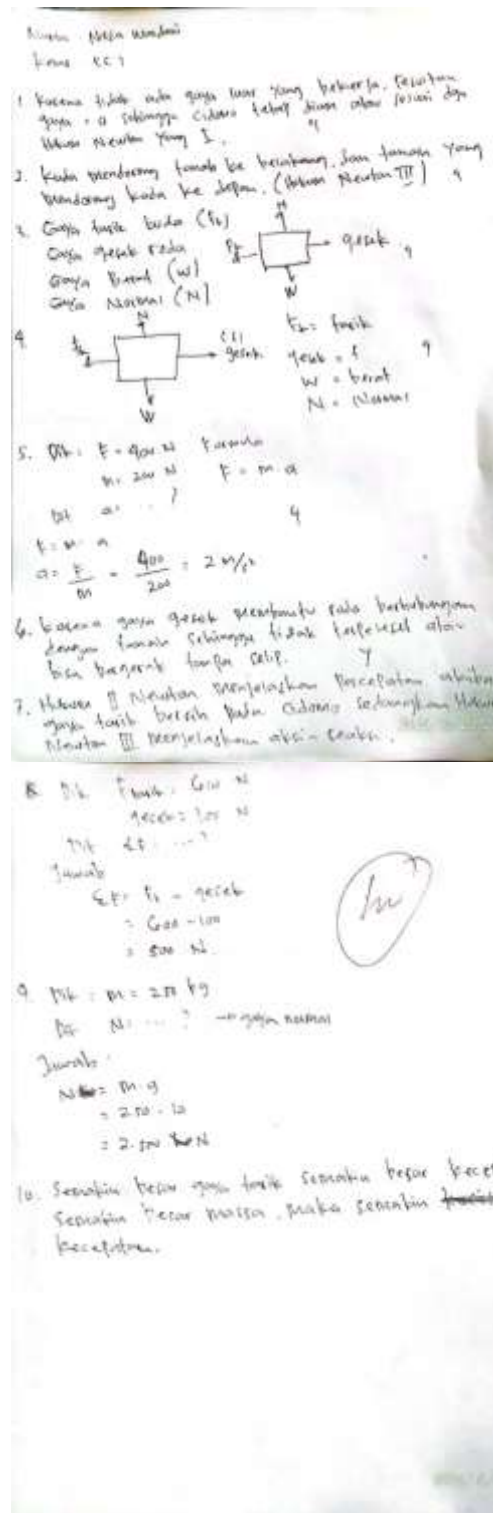 Nama
Kelas
1. Karena tidak ada gaya luar yang bekerja. resultan
gaya = 0 sehingga cidomo tetap diam atau sesuai dgn
Hukum Newton yang I.
2. Kuda mendorong tanah ke belakang, dan tanah yang
mendorong kuda ke depan. (Hukum Newton III)
3. Gaya tarik kuda (Fk)
Gaya gesek roda
Gaya Berat (W)
Gaya Normal (N)
N
gesek
W
4
N
gesek
W
tarik
gesek = f
W = berat
N = Normal
5. Dik : F = 400 N Formula
m = 200 N F = m . a
Dit a : ... ?
F = m . a
a = F/m = 400/200 = 2 m/s²
6. karena gaya gesek membantu roda berhubungan
dengan tanah sehingga tidak terpeleset atau
bisa bergerak tanpa selip.
7. Hukum II Newton menjelaskan percepatan akibat
gaya tarik bersih pada cidomo sedangkan Hukum
Newton III menjelaskan aksi-reaksi.
8 Dik F tarik : 600 N
gesek = 100 N
Dit ΣF : ... ?
Jawab
ΣF = Fk - gesek
= 600 - 100
= 500 N.
9. Dik : m = 250 kg
Dit N : ... ? → gaya normal
Jawab :
N = m . g
= 250 . 10
= 2.500 N
10. Semakin besar gaya tarik semakin besar
Semakin besar massa, maka semakin
kecepatan.